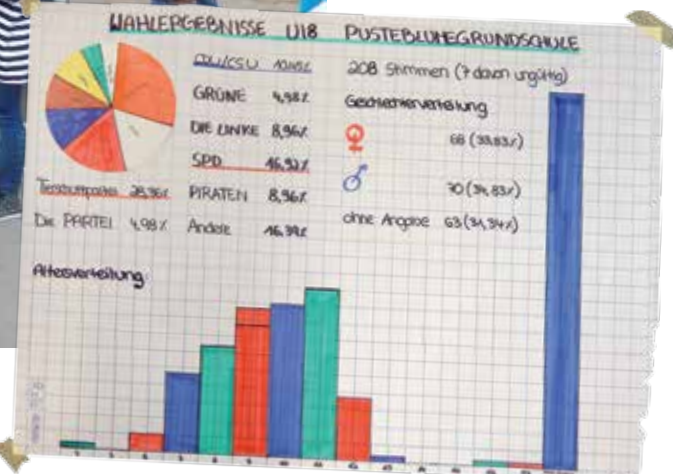 WAHLERGEBNISSE U18 PUSTEBLUMEGRUNDSCHULE
CDU/CSU
GRÜNE 4,98%
DIE LINKE 8,96%
SPD 16,92%
PIRATEN 8,96%
Andere 16,39%
Tierschutzpartei 28,36%
Die PARTEI 4,98%
208 Stimmen (7 davon ungültig)
Geschlechterverteilung
♀ 68 (33,83%)
♂ 70 (34,83%)
ohne Angabe 63 (31,34%)
Altersverteilung: